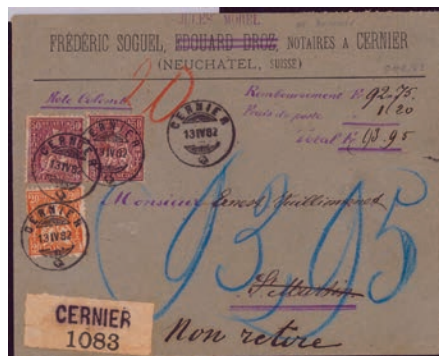 JULES MOREL
FRÉDÉRIC SOGUEL, EDOUARD DROZ, NOTAIRES A CERNIER
(NEUCHATEL, SUISSE)
20
Remboursement Fr. 92.75
Frais de poste 1.20
Total Fr. 93.95
CERNIER
13 IV 82
CERNIER
13 IV 82
CERNIER
13 IV 82
Monsieur Ernest Vuilliomenet
93.95
St Martin
CERNIER
1083
Non retiré